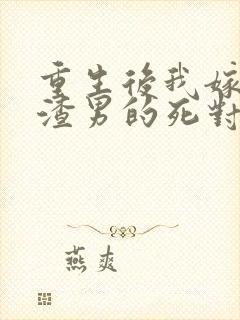 重生後我嫁
渣男的死對
燕爽